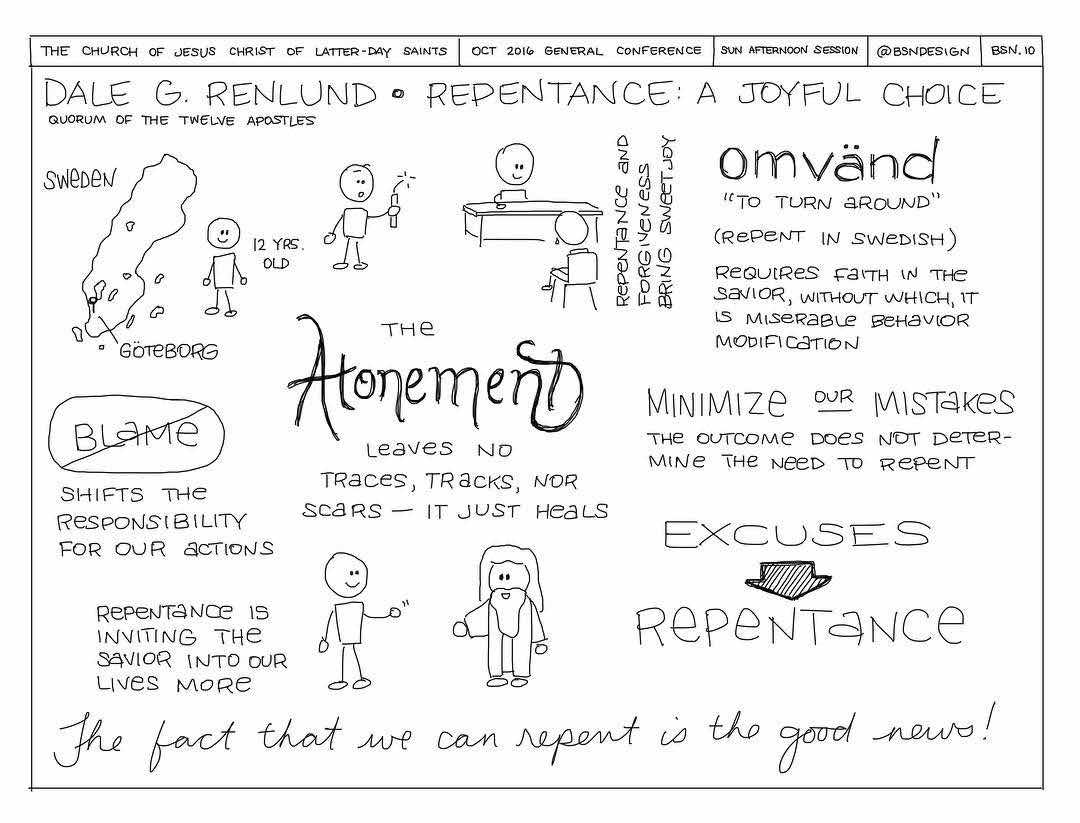 THE CHURCH OF JESUS CHRIST OF LATTER-DAY SAINTS
OCT 2016 GENERAL CONFERENCE
SUN AFTERNOON SESSION
@BSNDESIGN
BSN.10
DALE G. RENLUND • REPENTANCE: A JOYFUL CHOICE
QUORUM OF THE TWELVE APOSTLES
SWEDEN
12 YRS.
OLD
GÖTEBORG
REPENTANCE AND
FORGIVENESS
BRING SWEET JOY
omvänd
"TO TURN AROUND"
(REPENT IN SWEDISH)
REQUIRES FAITH IN THE
SAVIOR, WITHOUT WHICH, IT
IS MISERABLE BEHAVIOR
MODIFICATION
THE
Atonement
LEAVES NO
TRACES, TRACKS, NOR
SCARS — IT JUST HEALS
BLAME
SHIFTS THE
RESPONSIBILITY
FOR OUR ACTIONS
MINIMIZE OUR MISTAKES
THE OUTCOME DOES NOT DETER-
MINE THE NEED TO REPENT
EXCUSES
REPENTANCE
REPENTANCE IS
INVITING THE
SAVIOR INTO OUR
LIVES MORE
The fact that we can repent is the good news!